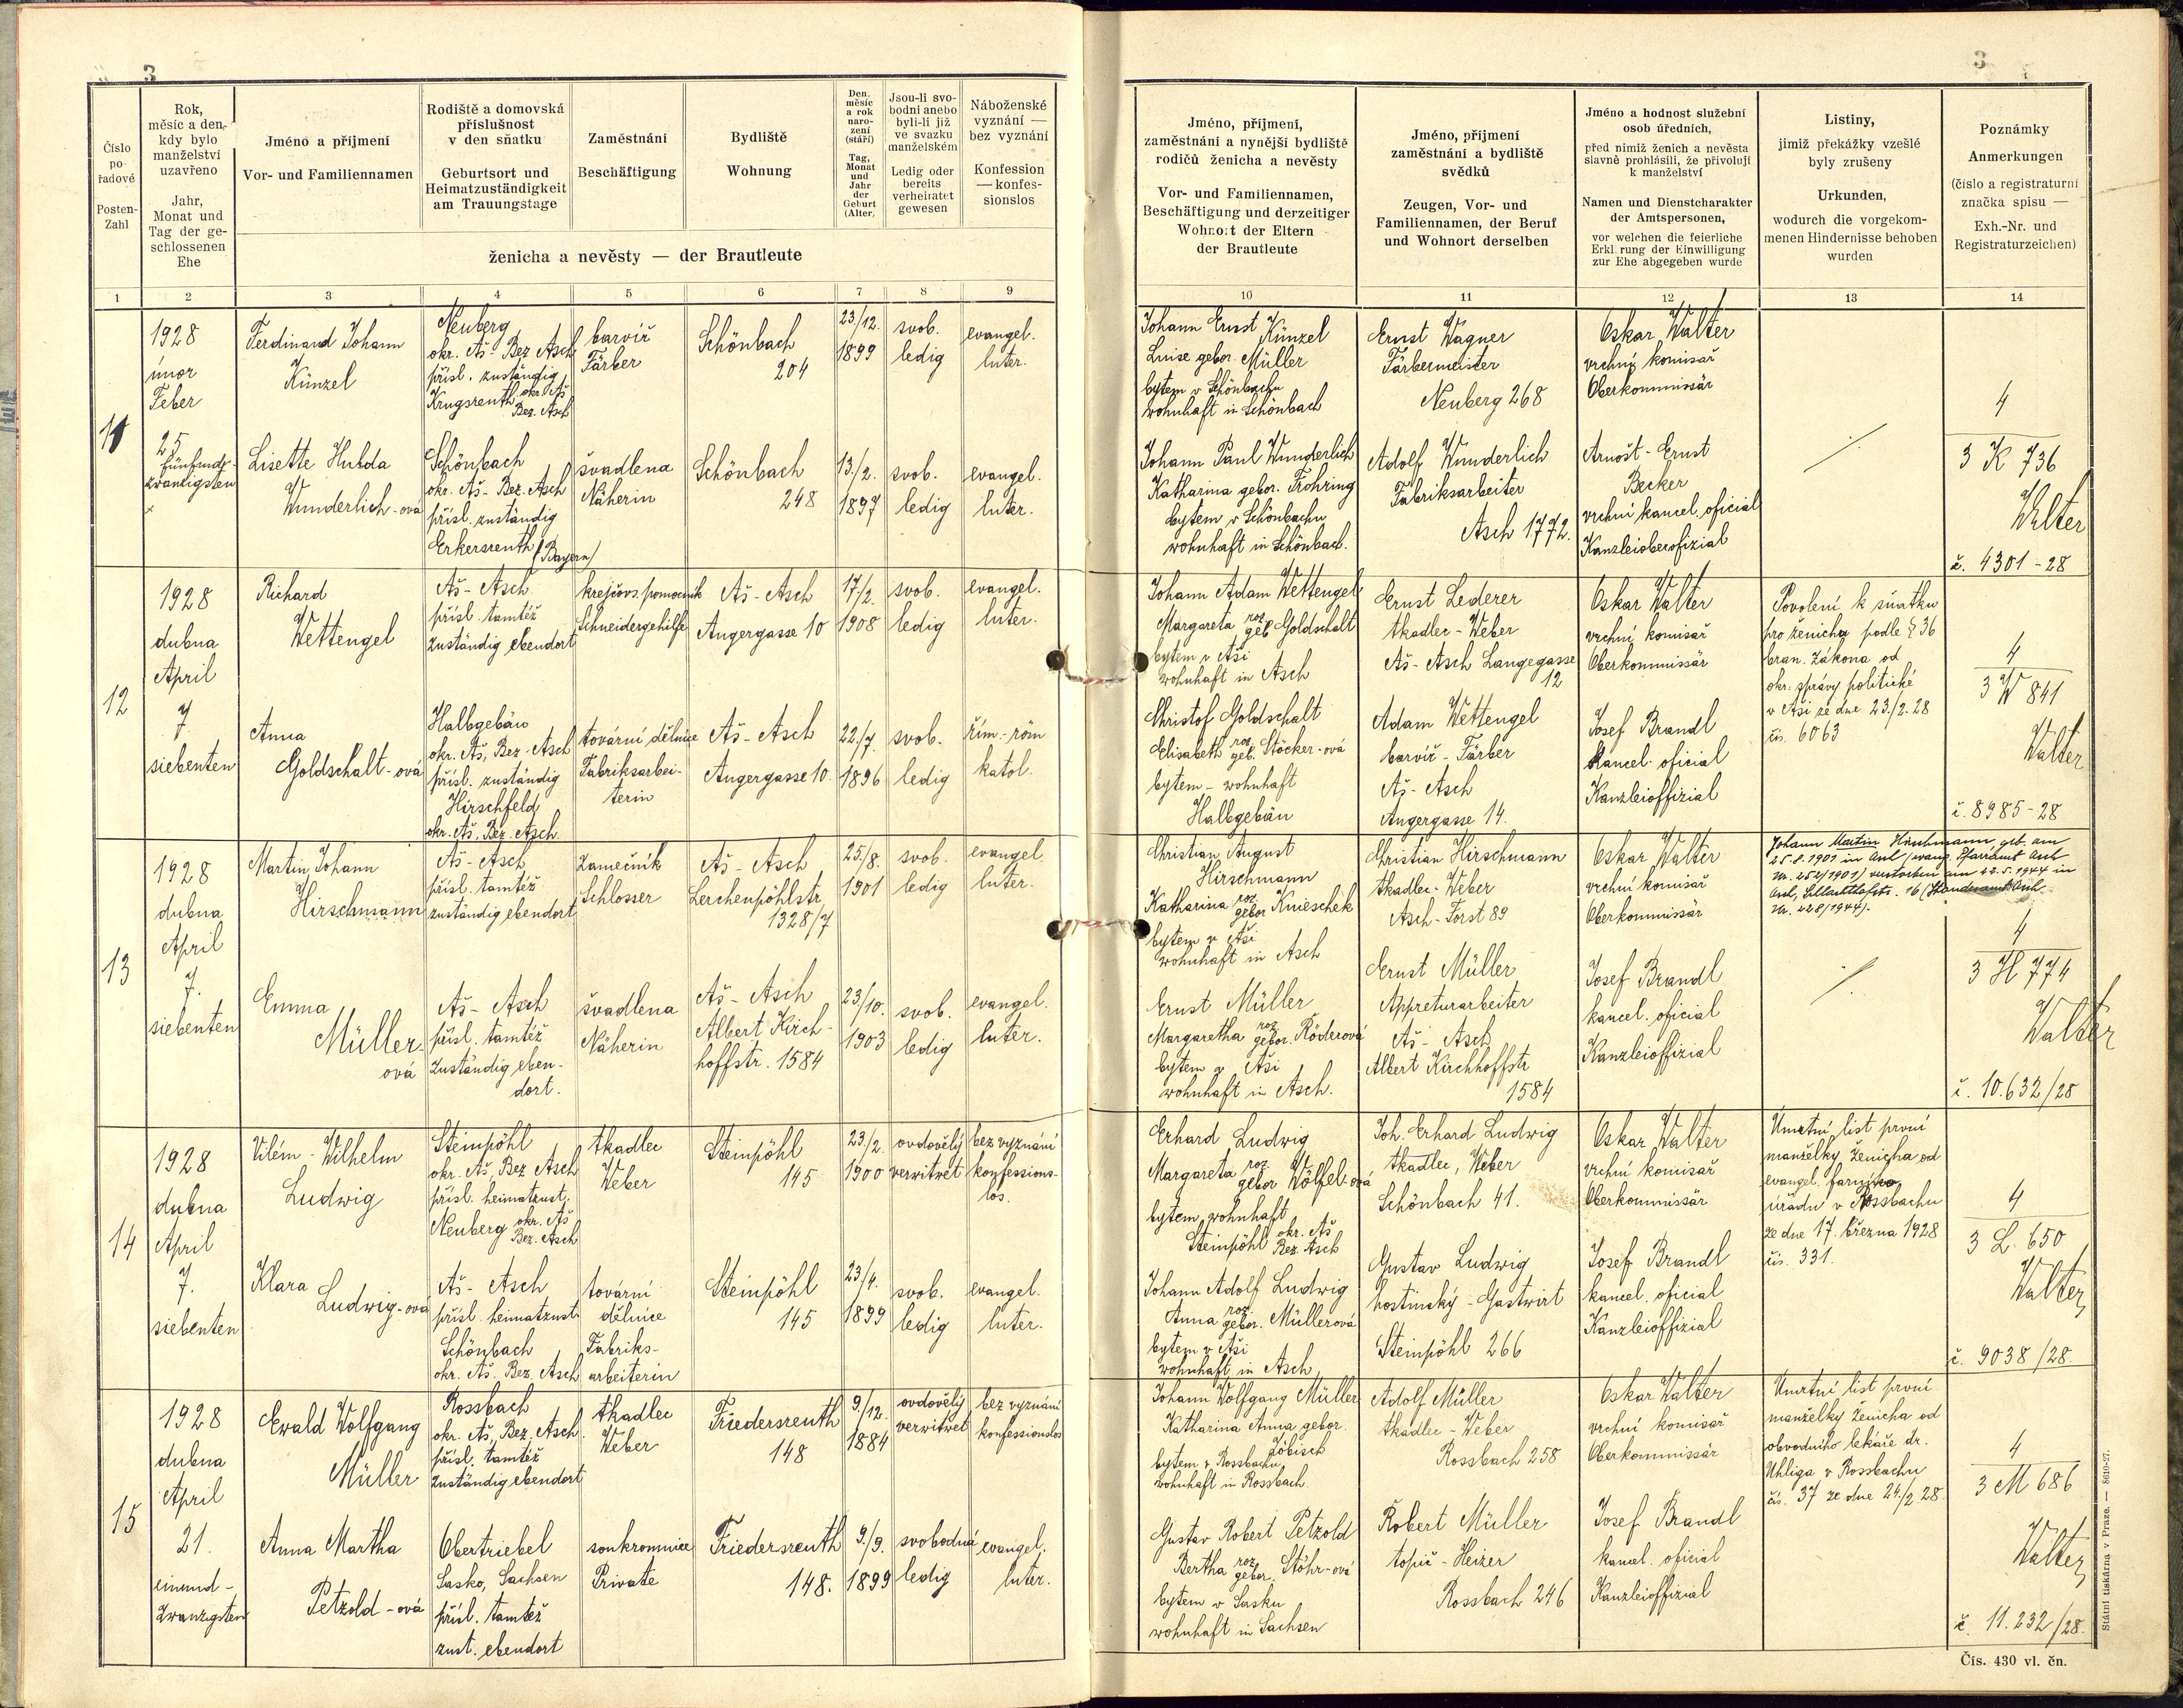 3
Číslo po- řadové
Posten- Zahl
Rok, měsíc a den, kdy bylo manželství uzavřeno
Jahr, Monat und Tag der ge- schlossenen Ehe
Jméno a příjmení
Vor- und Familiennamen
Rodiště a domovská příslušnost v den sňatku
Geburtsort und Heimatzuständigkeit am Trauungstage
Zaměstnání
Beschäftigung
Bydliště
Wohnung
Den, měsíc a rok naro- zení (stáří)
Tag, Monat und Jahr der Geburt (Alter)
Jsou-li svo- bodni anebo byli-li již ve svazku manželském
Ledig oder bereits verheiratet gewesen
Náboženské vyznání — bez vyznání
Konfession — konfes- sionslos
ženicha a nevěsty — der Brautleute
1 2 3 4 5 6 7 8 9
11
1928
únor
Feber
25
fünfund-
zwanzigsten
Ferdinand Johann
Künzel
Neuberg
okr. Aš - Bez Asch
přísl. zuständig
Krugsreuth okr. Aš
Bez. Asch
barvíř
Färber
Schönbach
204
23/12.
1899
svob.
ledig
evangel.
luter.
Lisette Hulda
Wunderlich-ová
Schönbach
okr. Aš - Bez. Asch
přísl. zuständig
Erkersreuth (Bayern)
švadlena
Näherin
Schönbach
248
13./2.
1897
svob.
ledig
evangel.
luter.
12
1928
dubna
April
7.
siebenten
Richard
Wettengel
Aš - Asch
přísl. tamtéž
zuständig ebendort
krejčovs. pomocník
Schneidergehilfe
Aš - Asch
Angergasse 10
17/2.
1908
svob.
ledig
evangel.
luter.
Anna
Goldschalt-ová
Halbgebäu
okr. Aš, Bez. Asch
přísl. zuständig
Hirschfeld
okr. Aš, Bez. Asch.
tovární dělnice
Fabriksarbei-
terin
Aš - Asch
Angergasse 10.
22./7.
1896
svob.
ledig
řím.-röm
katol.
13
1928
dubna
April
7.
siebenten
Martin Johann
Hirschmann
Aš - Asch
přísl. tamtéž
zuständig ebendort
zámečník
Schlosser
Aš - Asch
Lerchenpöhlstr.
1328/7
25/8.
1901
svob.
ledig
evangel.
luter.
Emma
Müller-
ová
Aš - Asch
přísl. tamtéž
zuständig eben-
dort.
švadlena
Näherin
Aš - Asch
Albert Kirch-
hoffstr. 1584
23/10.
1903
svob.
ledig
evangel.
luter.
14
1928
dubna
April
7.
siebenten
Vilém - Wilhelm
Ludwig
Steinpöhl
okr. Aš, Bez Asch
přísl. heimatzust.
Neuberg okr. Aš
Bez. Asch
tkadlec
Weber
Steinpöhl
145
23/2.
1900
ovdovělý
verwitwet
bez vyznání
konfessions-
los.
Klara
Ludwig-ová
Aš - Asch
přísl. heimatzust.
Schönbach
okr. Aš. Bez. Asch
tovární
dělnice
Fabriks-
arbeiterin
Steinpöhl
145
23/4.
1899
svob.
ledig
evangel.
luter.
15
1928
dubna
April
21.
einund-
zwanzigsten
Ewald Wolfgang
Müller
Rossbach
okr. Aš, Bez. Asch.
přísl. tamtéž
zuständig ebendort
tkadlec
Weber
Friedersreuth
148
9/12.
1884
ovdovělý
verwitwet
bez vyznání
konfessionslos
Anna Martha
Petzold-ová
Obertriebel
Sasko, Sachsen
přísl. tamtéž
zust. ebendort
soukromnice
Private
Friedersreuth
148.
9./9.
1899
svobodná
ledig
evangel.
luter.
3
Jméno, příjmení, zaměstnání a nynější bydliště rodičů ženicha a nevěsty
Vor- und Familiennamen, Beschäftigung und derzeitiger Wohnort der Eltern der Brautleute
Jméno, příjmení zaměstnání a bydliště svědků
Zeugen, Vor- und Familiennamen, der Beruf und Wohnort derselben
Jméno a hodnost služební osob úředních, před nimiž ženich a nevěsta slavně prohlásili, že přivolují k manželství
Namen und Dienstcharakter der Amtspersonen, vor welchen die feierliche Erkl rung der Einwilligung zur Ehe abgegeben wurde
Listiny, jimiž překážky vzešlé byly zrušeny
Urkunden, wodurch die vorgekom- menen Hindernisse behoben wurden
Poznámky
Anmerkungen
(číslo a registraturní značka spisu —
Exh.-Nr. und Registraturzeichen)
10 11 12 13 14
Johann Ernst Künzel
Luise gebor. Müller
bytem v Schönbachu
wohnhaft in Schönbach
Ernst Wagner
Färbermeister
Neuberg 268
Oskar Walter
vrchní komisař
Oberkommissär
Johann Paul Wunderlich
Katharina gebor. Frohring
bytem v Schönbachu
wohnhaft in Schönbach.
Adolf Wunderlich
Fabriksarbeiter
Asch 1772.
Arnošt - Ernst
Becker
vrchní kancel. oficial
Kanzleioberofizial
4
3 K 736
Walter
č. 4301-28
Johann Adam Wettengel
Margareta roz. geb. Goldschalt
bytem v Aši
wohnhaft in Asch
Ernst Lederer
tkadlec - Weber
Aš - Asch Langegasse
12
Oskar Walter
vrchní komisař
Oberkommissär
Povolení k sňatku
pro ženicha podle § 36
bran. zákona od
okr. správy politické
v Aši ze dne 23./2.28
čís. 6063
Christof Goldschalt
Elisabeth roz. geb. Stöcker-ová
bytem - wohnhaft
Halbgebäu
Adam Wettengel
barvíř - Färber
Aš - Asch
Angergasse 14.
Josef Brandl
kancel. oficial
Kanzleioffizial
4
3 W 841
Walter
č. 8985-28
Christian August
Hirschmann
Katharina roz. gebor Knieschek
bytem v Aši
wohnhaft in Asch
Christian Hirschmann
tkadlec - Weber
Asch - Forst 89
Oskar Walter
vrchní komisař
Oberkommissär
Johann Martin Hirschmann geb. am
25.8.1901 in Asch (evang. Pfarramt Asch
Nr. 252/1901) verstorben am 22.5.1944 in
Asch, Schlachthofstr. 16 (Standesamt Asch
Nr. 228/1944).
Ernst Müller
Margaretha roz. gebor. Röderová
bytem v Aši
wohnhaft in Asch.
Ernst Müller
Appreturarbeiter
Aš - Asch
Albert Kirchhoffstr
1584
Josef Brandl
kancel. oficial
Kanzleioffizial
4
3 H 774
Walter
č. 10.632/28
Erhard Ludwig
Margareta roz. gebor Wölfel-ová
bytem, wohnhaft
Steinpöhl okr. Aš
Bez. Asch
Joh. Erhard Ludwig
tkadlec, Weber
Schönbach 41.
Oskar Walter
vrchní komisař
Oberkommissär
Úmrtní list první
manželky ženicha od
evangel. farního
úřadu v Rossbachu
ze dne 17. března 1928
čís. 331.
Johann Adolf Ludwig
Anna roz. gebor. Müllerová
bytem v Aši
wohnhaft in Asch
Gustav Ludwig
hostinský - Gastwirt
Steinpöhl 266
Josef Brandl
kancel. oficial
Kanzleioffizial
4
3 L. 650
Walter
č. 9038/28.
Johann Wolfgang Müller
Katharina Anna gebor.
Zöbisch
bytem v Rossbachu
wohnhaft in Rossbach
Adolf Müller
tkadlec - Weber
Rossbach 258
Oskar Walter
vrchní komisař
Oberkommissär
Úmrtní list první
manželky ženicha od
obvodního lékaře dr.
Uhliga v Rossbachu
čís. 37 ze dne 24./2.28.
Gustav Robert Petzold
Bertha roz. gebor. Stöhr-ová
bytem v Sasku
wohnhaft in Sachsen
Robert Müller
topič - Heizer
Rossbach 246
Josef Brandl
kancel. oficial
Kanzleioffizial
4
3 M 686
Walter
č. 11.232/28.
Státní tiskárna v Praze. — 8610-27.
Čís. 430 vl. čn.